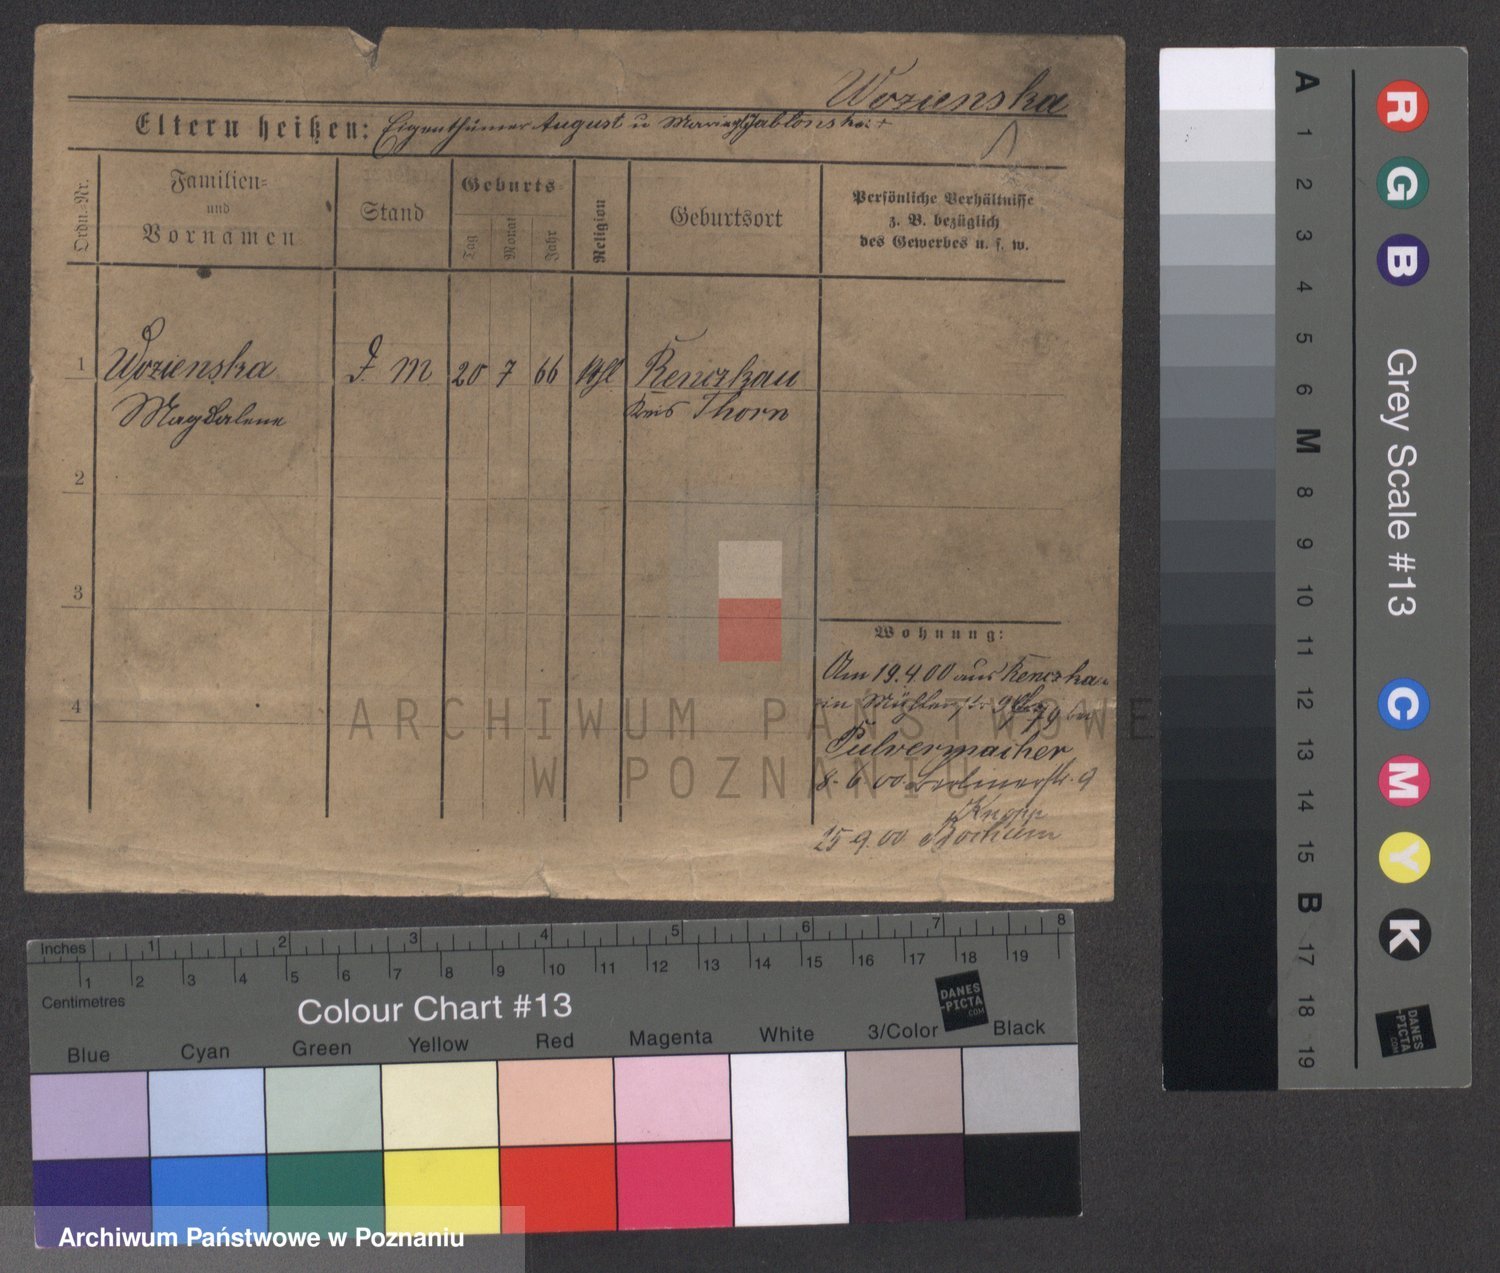 Wozienska
Eltern heißen: Eigenthümer August u Jablonska
Ordn.-Nr.
Familien-
und
Vornamen
Stand
Geburts-
Tag
Monat
Jahr
Religion
Geburtsort
Persönliche Verhältnisse
z. B. bezüglich
des Gewerbes u. s. w.
1 Wozienska M 20 7 66 Renczkau
Magdalene Kreis Thorn
2
3
4
Wohnung:
Am 19.4.00 aus Renczkau
in
Pulvermacher
8. 6 00 Berlinerstr. 9
Knopp
25 9 00 Bochum
ARCHIWUM PAŃSTWOWE
W POZNANIU
A 1 2 3 4 5 6 M 8 9 10 11 12 13 14 15 B 17 18 19
R G B Grey Scale #13 C M Y K
DANES
-PICTA
.COM
Inches 1 2 3 4 5 6 7 8
1 2 3 4 5 6 7 8 9 10 11 12 13 14 15 16 17 18 19
Centimetres
Colour Chart #13
DANES
-PICTA
.COM
Blue Cyan Green Yellow Red Magenta White 3/Color Black
Archiwum Państwowe w Poznaniu